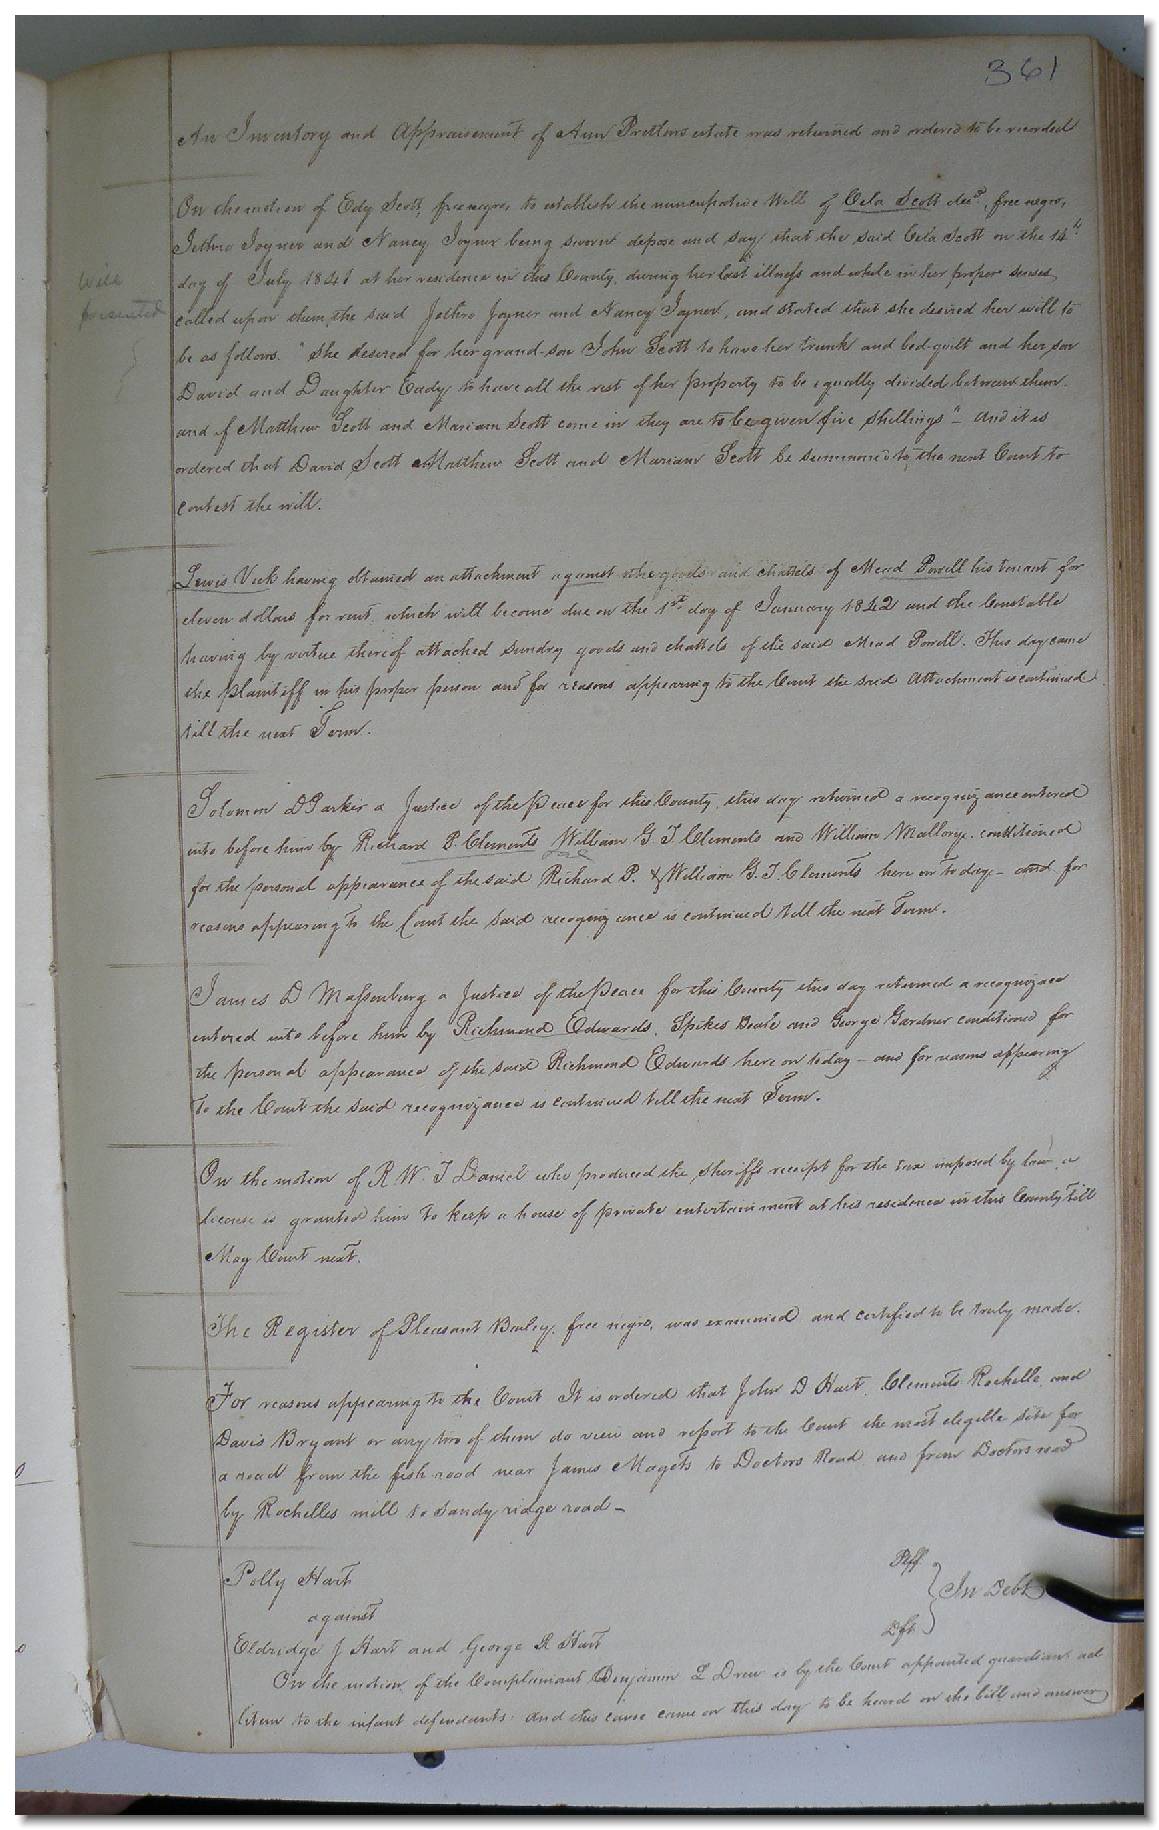 361
An Inventory and Appraisement of Ann Pretlows estate was returned and ordered to be recorded
On the motion of Edy Scott, free negro, to establish the nuncupative Will of Cela Scott decd, free negro,
Jethro Joyner and Nancy Joyner being sworn depose and say that the said Cela Scott on the 14th
Will
day of July 1841 at her residence in this County, during her last illness and while in her proper senses
presented
called upon them, the said Jethro Joyner and Nancy Joyner, and stated that she desired her will to
be as follows. "She desired for her grand-son John Scott to have her trunk and bed-quilt and her son
David and Daughter Eady to have all the rest of her property to be equally divided between them.
and if Matthew Scott and Mariam Scott come in they are to be given five shillings" - And it is
ordered that David Scott Matthew Scott and Mariam Scott be summoned to the next Court to
contest the will.
Lewis Vick having obtained an attachment against the goods and chattels of Mead Powell his tenant for
eleven dollars for rent which will become due on the 1st day of January 1842 and the Constable
having by virtue thereof attached sundry goods and chattels of the said Mead Powell. This day came
the plaintiff in his proper person and for reasons appearing to the Court the said Attachment is continued
till the next Term.
Solomon D Parker a Justice of the Peace for this County, this day returned a recognizance entered
into before him by Richard P. Clements William G T Clements and William Mallory. conditioned
for the personal appearance of the said Richard P. & William G. T. Clements here on today - and for
reasons appearing to the Court the said recognizance is continued till the next Term.
James D Massenburg a Justice of the Peace for this County this day returned a recognizance
entered into before him by Richmond Edwards, Spikes Beale and George Gardner conditioned for
the personal appearance of the said Richmond Edwards here on today - and for reasons appearing
to the Court the said recognizance is continued till the next Term.
On the motion of R W. T Daniel who produced the Sheriffs receipt for the tax imposed by law, a
license is granted him to keep a house of private entertainment at his residence in this County till
May Court next.
The Register of Pleasant Bailey, free negro, was examined and certified to be truly made.
For reasons appearing to the Court It is ordered that John D Hart, Clements Rochelle and
Davis Bryant or any two of them do view and report to the Court the most elegible site for
a road from the fish road near James Magets to Doctors Road and from Doctors road
by Rochelles mill to Sandy ridge road -
Polly Hart Plff
against } In Debt
Eldridge J Hart and George R Hart Dft
On the motion of the Complainant Benjamin L Drew is by the Court appointed guardian ad
litem to the infant defendants. And this cause came on this day to be heard on the bill and answer